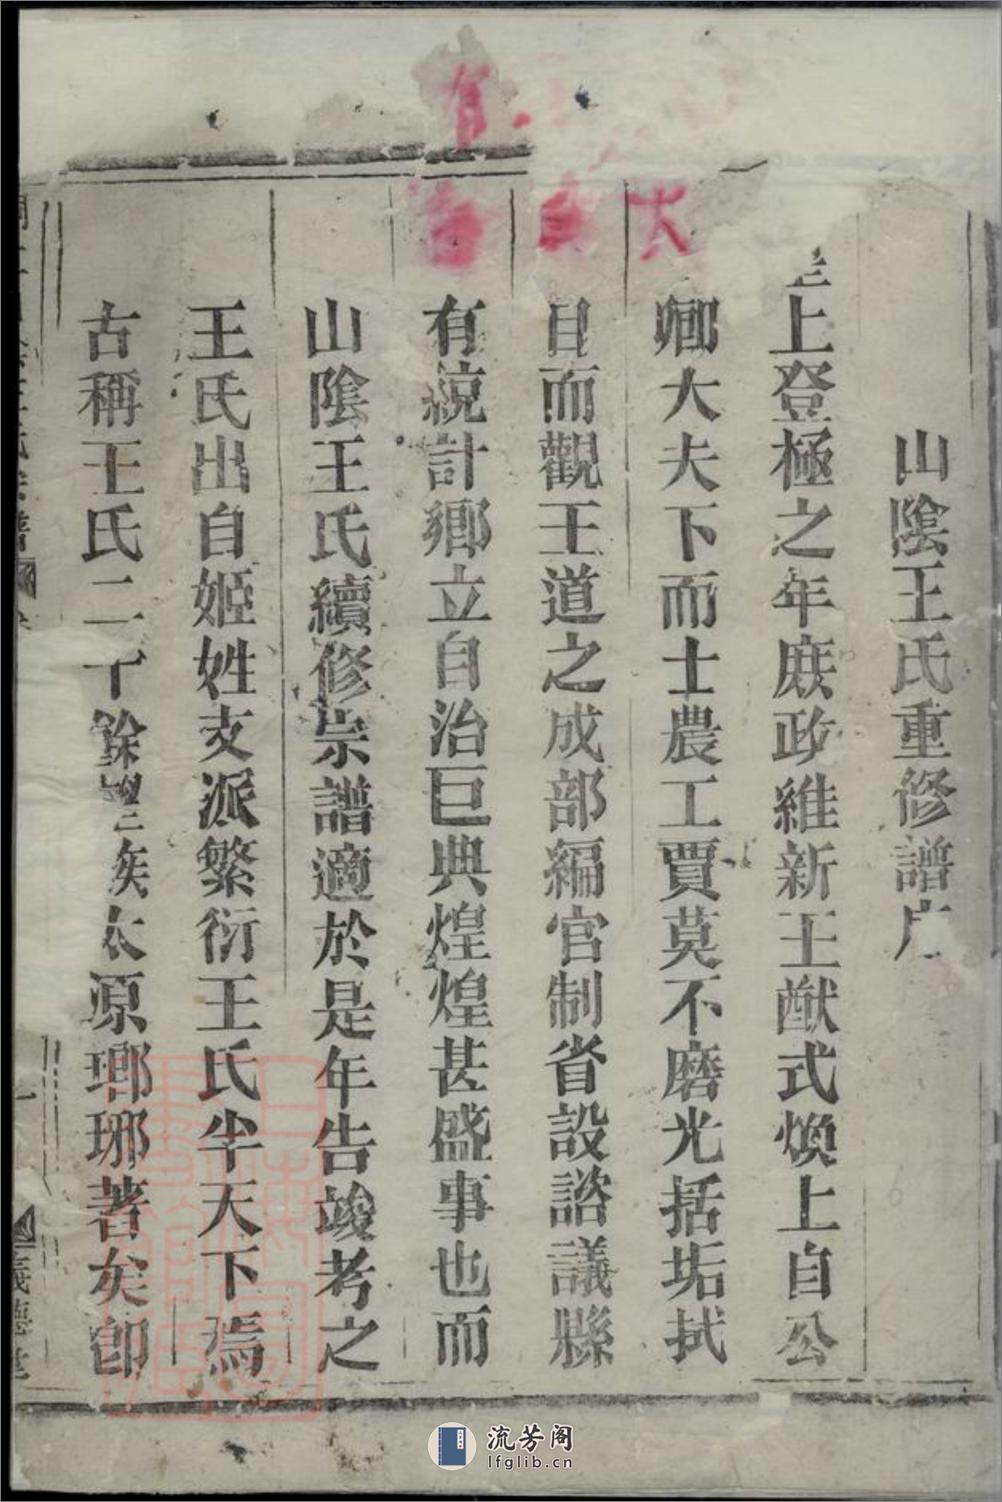 山陰王氏重修譜序
上登極之年庶政維新王猷式煥上自公
卿大夫下而士農工賈莫不磨光括垢拭
目而觀王道之成部編官制省設諮議縣
有統計鄉立自治巨典煌煌甚盛事也而
山陰王氏續修宗譜適於是年告竣考之
王氏出自姬姓支派繁衍王氏半天下焉
古稱王氏二十餘望族太原瑯琊著矣卽
一
義德堂
流芳阁
lfglib.cn